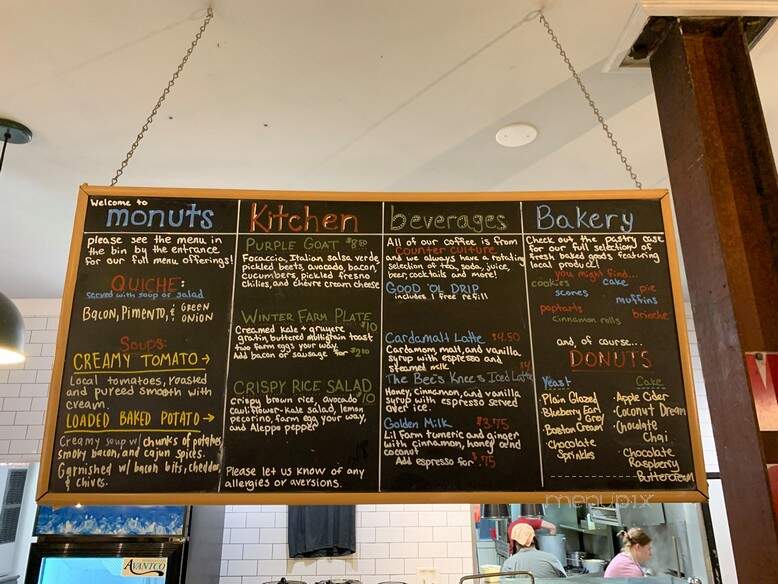 Welcome to
monuts
please see the menu in
the bin by the entrance
for our full menu offerings!
QUICHE:
served with soup or salad
BACON, PIMENTO, & GREEN
ONION
Soups:
CREAMY TOMATO →
Local tomatoes, roasted
and pureed smooth with
cream.
LOADED BAKED POTATO →
Creamy soup w/ chunks of potatoes,
smoky bacon, and cajun spices.
Garnished w/ bacon bits, cheddar,
& chives.
Kitchen
PURPLE GOAT $8.50
Focaccia, Italian salsa verde,
pickled beets, avocado, bacon,
cucumbers, pickled fresno
chilies, and chèvre cream cheese
WINTER FARM PLATE
$10
Creamed kale + gruyere
gratin, buttered multigrain toast
two farm eggs your way.
Add bacon or sausage for $2.00
CRISPY RICE SALAD
$10
Crispy brown rice, avocado
cauliflower-kale salad, lemon
pecorino, farm egg your way,
and Aleppo pepper
Please let us know of any
allergies or aversions.
beverages
All of our coffee is from
counter culture
and we always have a rotating
selection of tea, soda, juice,
beer, cocktails and more!
GOOD 'OL DRIP
includes 1 free refill
Cardamalt Latte $4.50
Cardamom, malt, and vanilla
syrup with espresso and
steamed milk
The Bee's Knee's Iced Latte $4
Honey, cinnamon, and vanilla
syrup with espresso served
over ice.
Golden Milk $3.75
Lil Farm turmeric and ginger
with cinnamon, honey and
coconut
Add espresso for $.75
Bakery
Check out the pastry case
for our full selection of
fresh baked goods featuring
local produce!
you might find...
cookies cake pie
scones muffins
poptarts brioche
cinnamon rolls
and, of course...
DONUTS
Yeast
Plain Glazed
Blueberry Earl
Grey
Boston Cream
Chocolate
Sprinkles
Cake
Apple Cider
Coconut Dream
Chocolate
Chai
Chocolate
Raspberry
Buttercream
menupix
AVANTCO